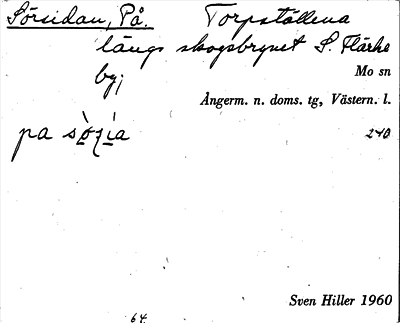 Sörsidan, På. Torpställena
längs skogsbrynet S. Flärke
by;
Mo sn
Ångerm. n. doms. tg, Västern. l.
pa sò̱ʒi̱a 240
Sven Hiller 1960
64